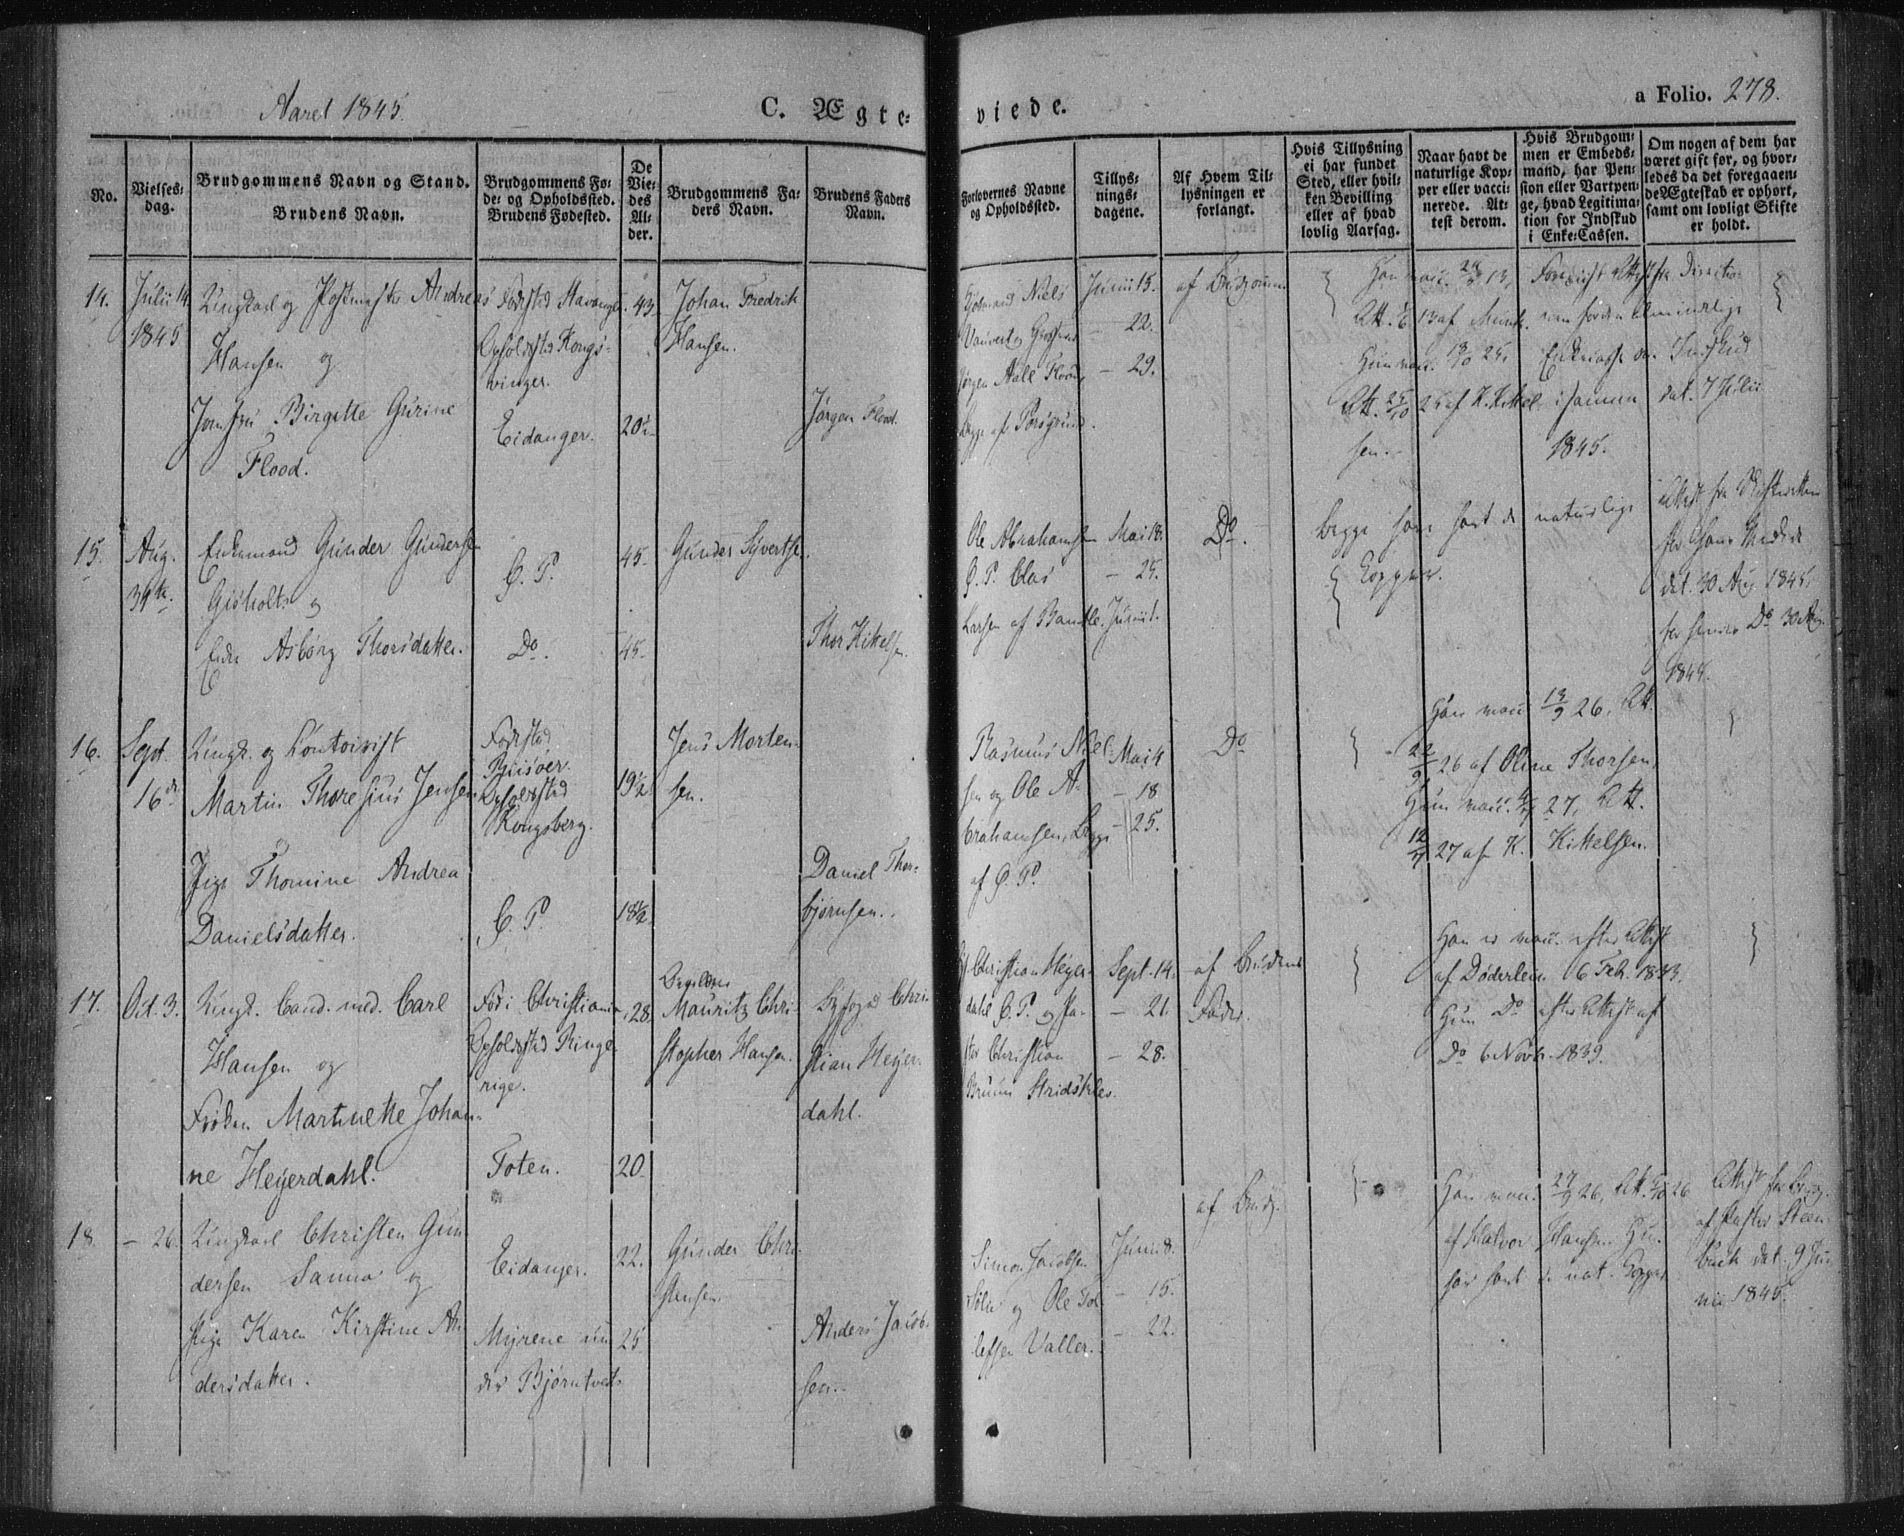 Aaret 1845.
C. Ægte-
viede.
a Folio. 278.
No.
Vielses-
dag.
Brudgommens Navn og Stand.
Brudens Navn.
Brudgommens Fø-
de- og Opholdssted.
Brudens Fødested.
De
Vie-
des
Al-
der.
Brudgommens Fa-
ders Navn.
Brudens Faders
Navn.
Forlovernes Navne
og Opholdssted.
Tillys-
nings-
dagene.
Af Hvem Til-
lysningen er
forlangt.
Hvis Tillysning
ei har fundet
Sted, eller hvil-
ken Bevilling
eller af hvad
lovlig Aarsag.
Naar havt de
naturlige Kop-
per eller vacci-
nerede. At-
test derom.
Hvis Brudgom-
men er Embeds-
mand, har Pen-
sion eller Vartpen-
ge, hvad Legitima-
tion for Indskud
i Enke-Cassen.
Om nogen af dem har
været gift før, og hvor-
ledes da det foregaaen-
de Ægteskab er ophørt,
samt om lovligt Skifte
er holdt.
14.
Julii 14
1845
Ungkarl og Postmester Andreas
Hansen og
Jomfru Birgitte Gurine
Flood.
Fødested Stavanger
Opholdssted Kongs-
vinger.
Eidanger.
43
20½
Johan Fredrik
Hansen.
Jørgen Flood.
Niels
Jørgen Aall Flood,
Begge af Porsgrund.
Junii 15.
- 22.
- 29.
af Brudgommen
Han vacc.
Hun vacc.
Att. 25/10 25 af K. Kittel-
sen.
dat. 7 Julii
1845.
15.
Aug.
31te.
Enkemand Gunder Gundersen
Gisholt og
Enke Asbørg Thorsdatter.
G. P.
Do.
45.
45.
Gunder Syvertsen.
Thor Kittelsen.
Ole Abrahamsen
G. P. Clas
Larsen af Bamble.
Mai 18.
- 25.
Junii 1.
Do.
Begge have havt de naturlige
Kopper.
Attest fra Skifteretten
for hans Vedkd.
dat. 30 Aug. 1845.
for hendes Do 30 Aug.
1845.
16.
Sept.
16de
Ungk. og Contoirist
Martin Thoresius Jensen
og
Pige Thomine Andrea
Danielsdatter.
Fødested
Riisøer.
Opholdssted
Kongsberg.
G. P.
19½
18½
Jens Morten-
sen.
Daniel Thor-
bjørnsen.
Rasmus Niel-
sen og Ole A-
brahamsen, Begge
af G. P.
Mai 4
- 18
- 25.
Do
Han vacc. 13/9 26, Att.
22/9 26 af Oline Thorsen,
Hun vacc. 27, Att.
27 af K. Kittelsen.
17.
Oct. 3.
Ungk. Cand. med. Carl
Hansen og
Frøken Martinette Johan-
ne Heyerdahl.
Fød i Christiania,
Opholdssted Ringe-
rige.
Toten.
28
20
Mauritz Chri-
stopher Hansen.
Byfoged Chri-
stian Heyer-
dahl.
Christian Heyer-
dahl G. P. og Pa-
stor Christian
Bruun Stridsklev.
Sept. 14.
- 21.
- 28.
af Brudens
Fader.
Han er vacc. efter Attest
af Døderlein 6 Feb. 1843.
Hun Do efter Attest af
Do 6 Novb. 1839.
18
- 26.
Ungkarl Christen Gun-
dersen Sanna og
Pige Karen Kirstine An-
dersdatter.
Eidanger.
Myrene un-
der Bjørntvedt
22.
25
Gunder Chri-
stensen.
Anders Jacob-
sen.
Simon Jacobsen
og Ole Tol-
lefsen Valler.
Junii 8.
- 15.
- 22.
af Brudg.
Han vacc. 27/9 26, Att. 26
af Halvor Hansen. Hun
har havt de nat. Kopper
Attest for Brudg.
af Pastor Steen-
buch dat. 9 Ju-
nii 1845.